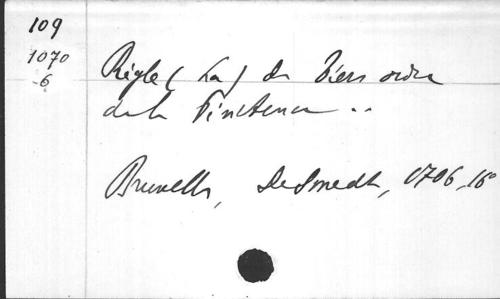 109
1070
6
Règle (La) du Tiers ordre
de la Pénitence ..
Bruxelles, De Smedt, 1706, 16°